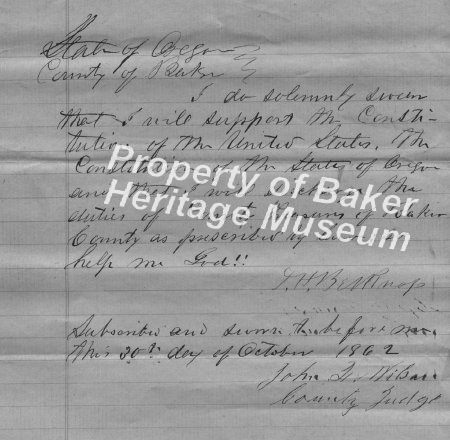 State of Oregon
County of Baker
I do solemnly swear
that I will support the Consti-
tution of the United States, the
Constitution of the State of Oregon
and that I will the
duties of of Baker
County as prescribed by so
help me God!!
Property of Baker
Heritage Museum
Subscribed and sworn to before me
this 30th day of October 1862
John
County Judge